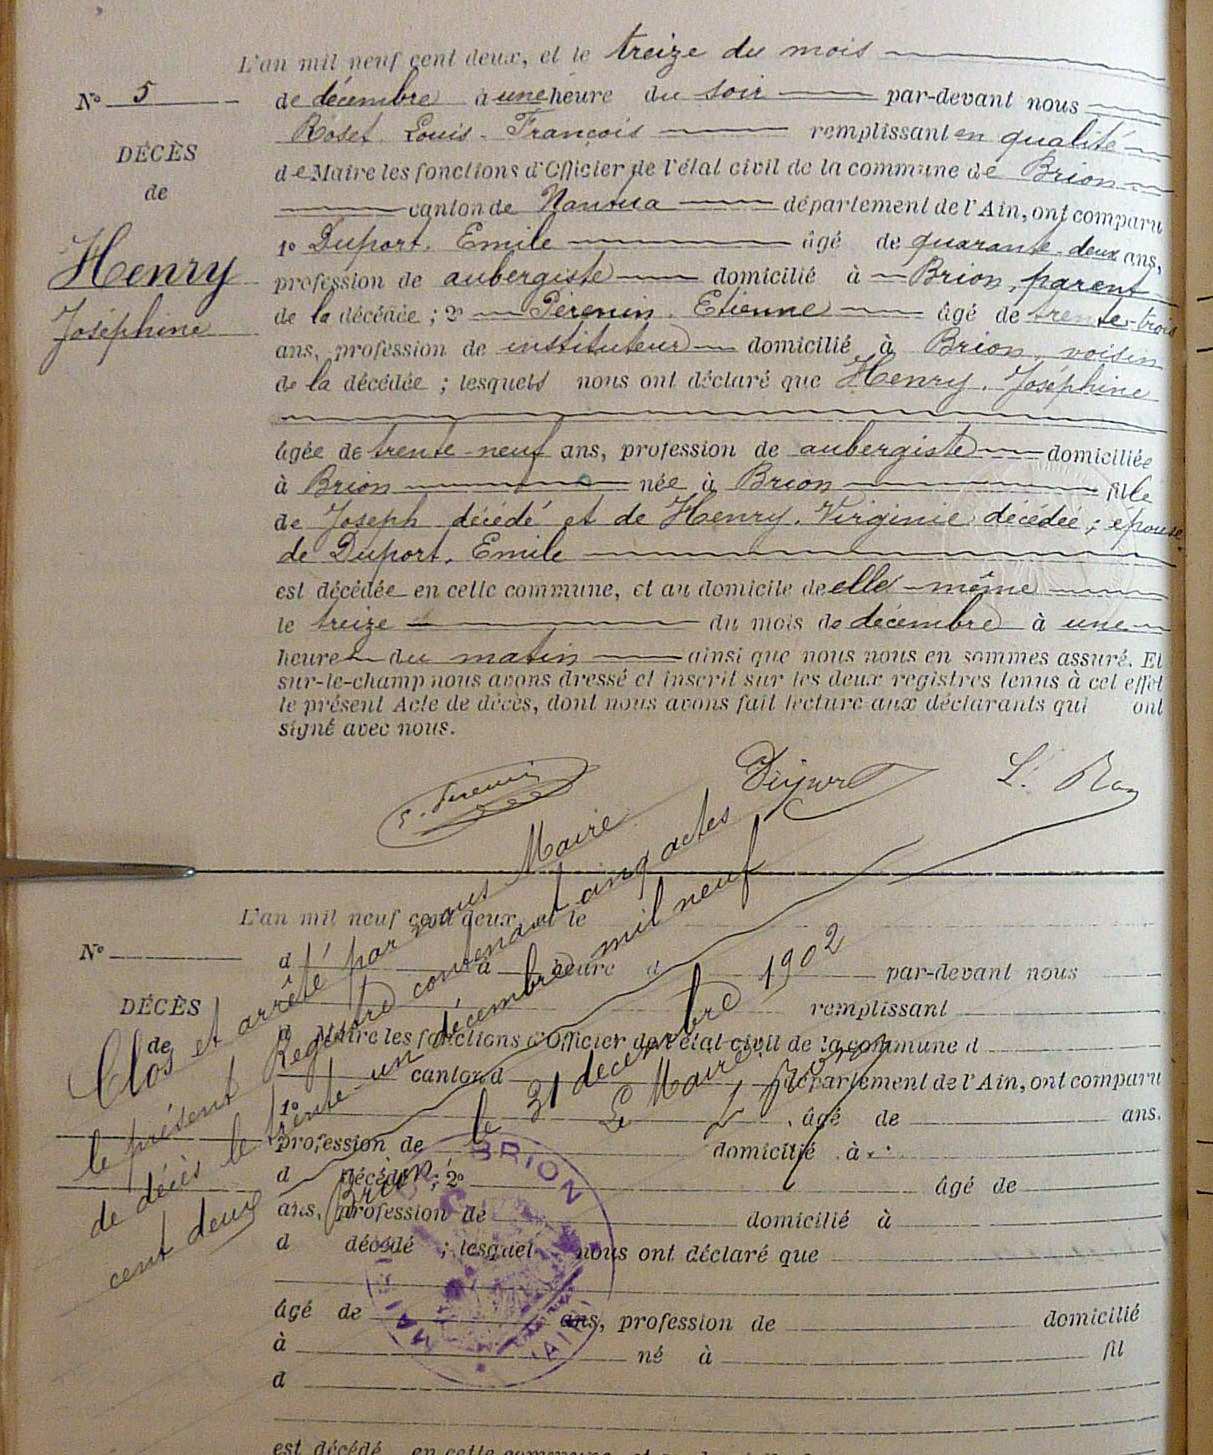 L'an mil neuf cent deux, et le treize du mois
N° 5
de décembre à une heure du soir par-devant nous
Roset Louis-François remplissant en qualité
DÉCÈS
de Maire les fonctions d'Officier de l'état civil de la commune de Brion
de
canton de Nantua département de l'Ain, ont comparu
1° Duport. Emile âgé de quarante-deux ans,
Henry
profession de aubergiste domicilié à Brion, parent
Joséphine
de la décédée ; 2° Perenin. Etienne âgé de trente-trois
ans, profession de instituteur domicilié à Brion, voisin
de la décédée ; lesquels nous ont déclaré que Henry. Joséphine
âgée de trente-neuf ans, profession de aubergiste domiciliée
à Brion née à Brion fille
de Joseph décédé et de Henry. Virginie décédée ; épouse
de Duport. Emile
est décédée en cette commune, et au domicile de elle-même
le treize du mois de décembre à une
heure du matin ainsi que nous nous en sommes assuré. Et
sur-le-champ nous avons dressé et inscrit sur les deux registres tenus à cet effet
le présent Acte de décès, dont nous avons fait lecture aux déclarants qui ont
signé avec nous.
E. Perenin Duport L. Ro
L'an mil neuf cent deux, et le
N°
d à heure d par-devant nous
DÉCÈS
remplissant
de
d Maire les fonctions d'Officier de l'état civil de la commune d
canton d département de l'Ain, ont comparu
1° âgé de ans.
profession de domicilié à
d décédé ; 2° âgé de
ans, profession de domicilié à
d décédé ; lesquel nous ont déclaré que
âgé de ans, profession de domicilié
à né à fil
d
est décédé en cette commune, et au domicile d
Clos et arrêté par nous Maire
le présent Registre contenant cinq actes
de décès le trente-un décembre mil neuf
cent deux
Brion, le 31 décembre 1902
Le Maire
L. Roset
MAIRIE DE BRION
(AIN)